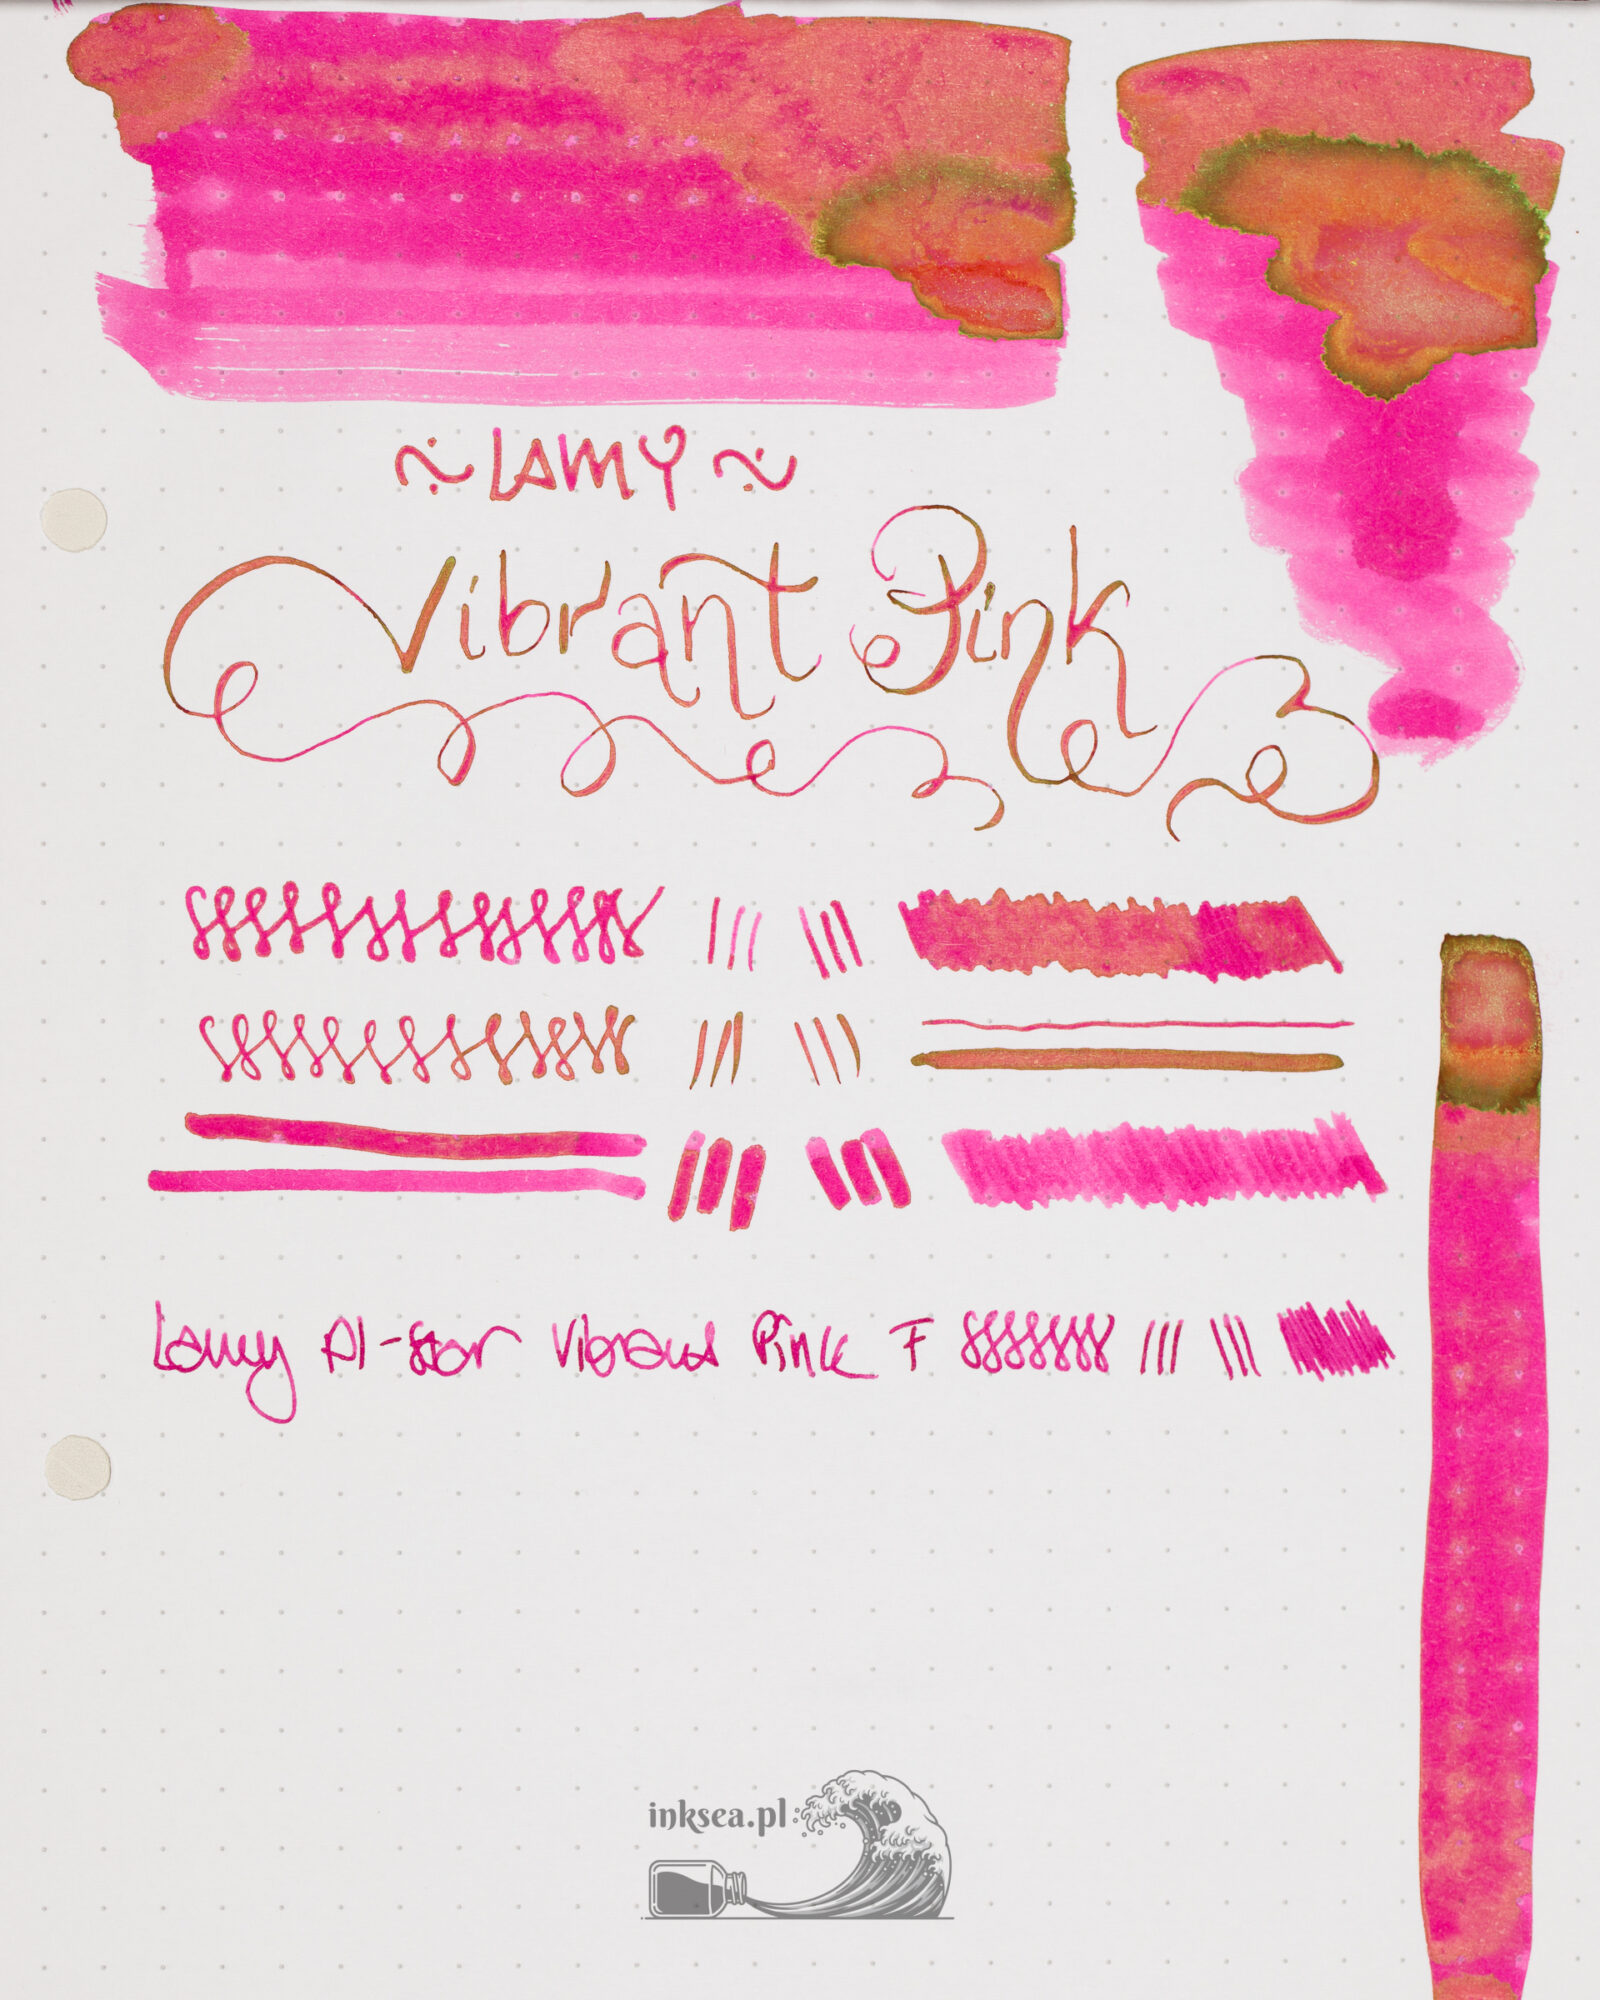 ~ LAMY ~
Vibrant Pink
Lamy Al-star Vibrant Pink F
inksea.pl